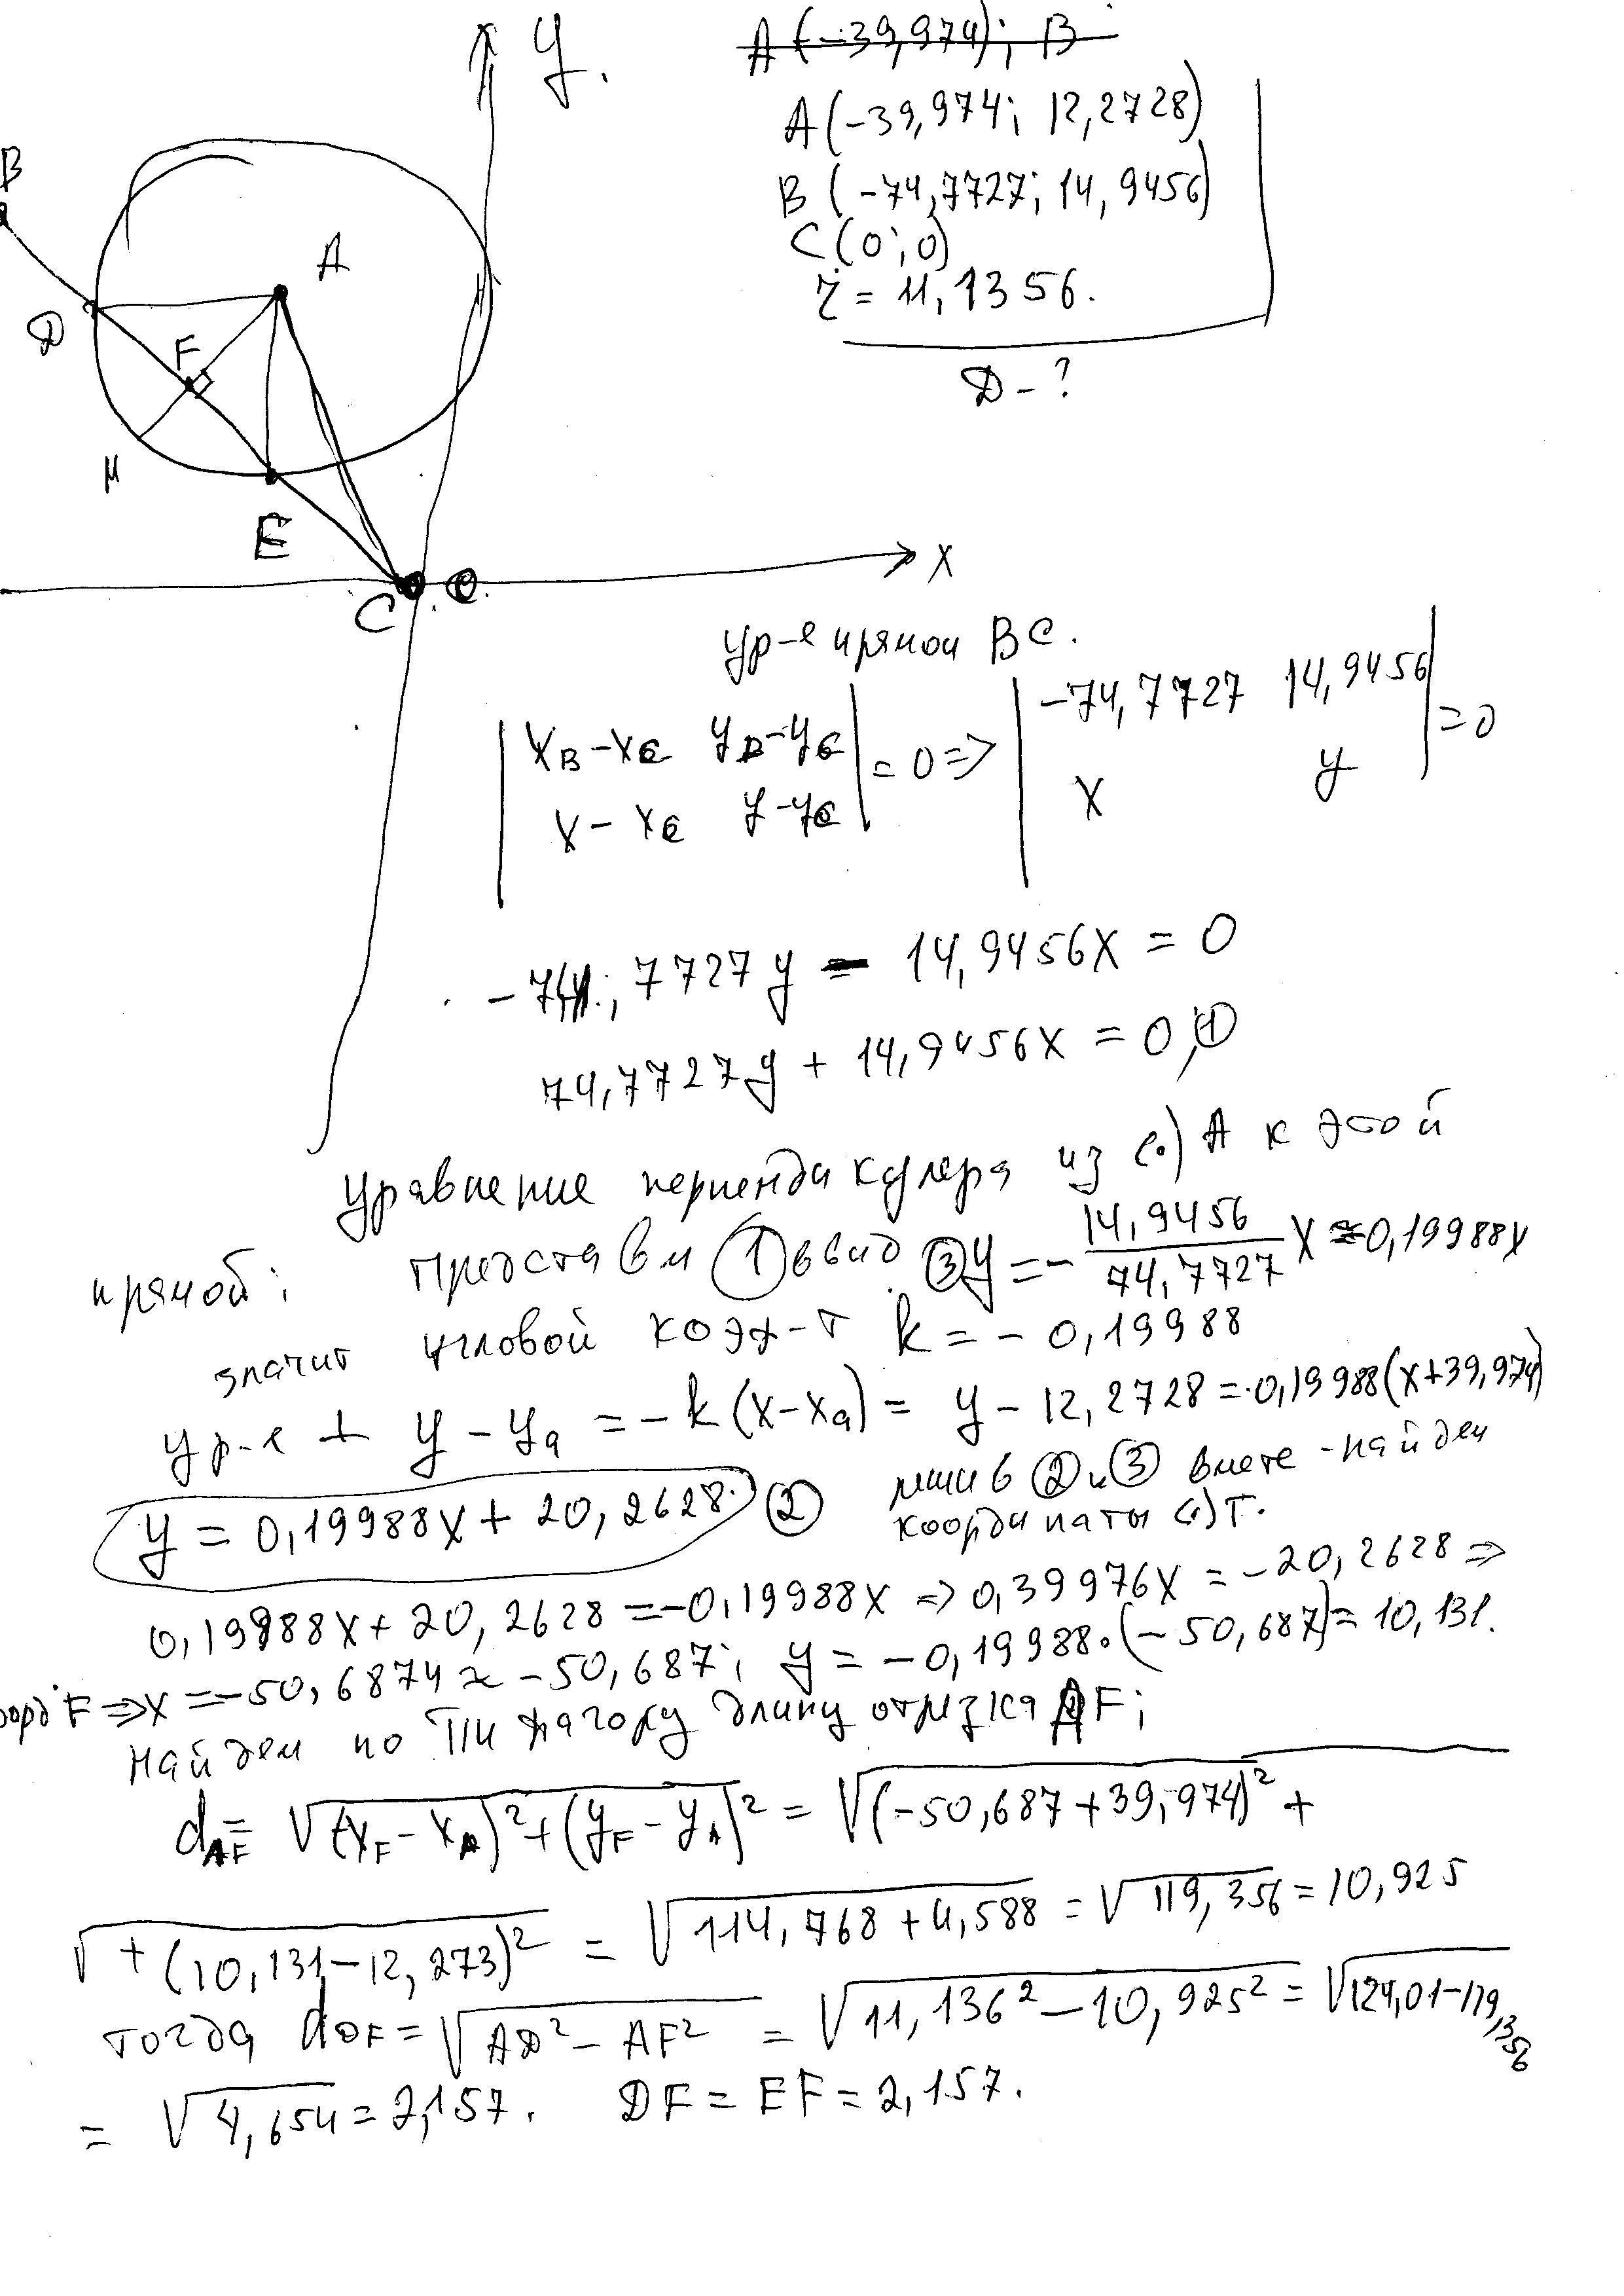 y.
A(-39,974); B
A(-39,974; 12,2728)
B(-74,7727; 14,9456)
C(0;0)
r = 11,1356.
D - ?
B
A
D
F
M
E
C
x
ур-е прямой BC.
| xB-xC yB-yC | = 0 => | -74,7727 14,9456 | = 0
| x-xC y-yC | | x y |
-74,7727y - 14,9456x = 0
74,7727y + 14,9456x = 0, ①
уравнение перпендикуляра из (·) A к этой
прямой: представим ① в вид ③ y = - 14,9456/74,7727 x ≈ 0,19988x
значит угловой коэф-т k = -0,19988
ур-е ⊥ y - ya = -k(x-xa) = y - 12,2728 = 0,19988(x+39,974)
y = 0,19988x + 20,2628. ② ②и③ вместе - найдем
координаты (·)T.
0,19988x + 20,2628 = -0,19988x => 0,39976x = -20,2628 =>
F => x = -50,6874 ≈ -50,687; y = -0,19988·(-50,687) = 10,131.
найдем по Пифагору длину отрезка AF;
dAF = √(xF-xA)²+(yF-yA)² = √(-50,687+39,974)² +
√+(10,131-12,273)² = √114,768+4,588 = √119,356 = 10,925
тогда dDF = √AD²-AF² = √11,136²-10,925² = √124,01-119,356
= √4,654 = 2,157. DF = EF = 2,157.